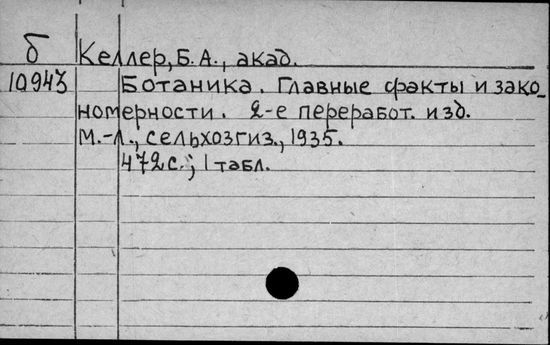 б Келлер, Б. А., акад.
10943 Ботаника. Главные факты и зако-
номерности. 2-е переработ. изд.
М.-Л., сельхозгиз., 1935.
472 с.; 1 табл.